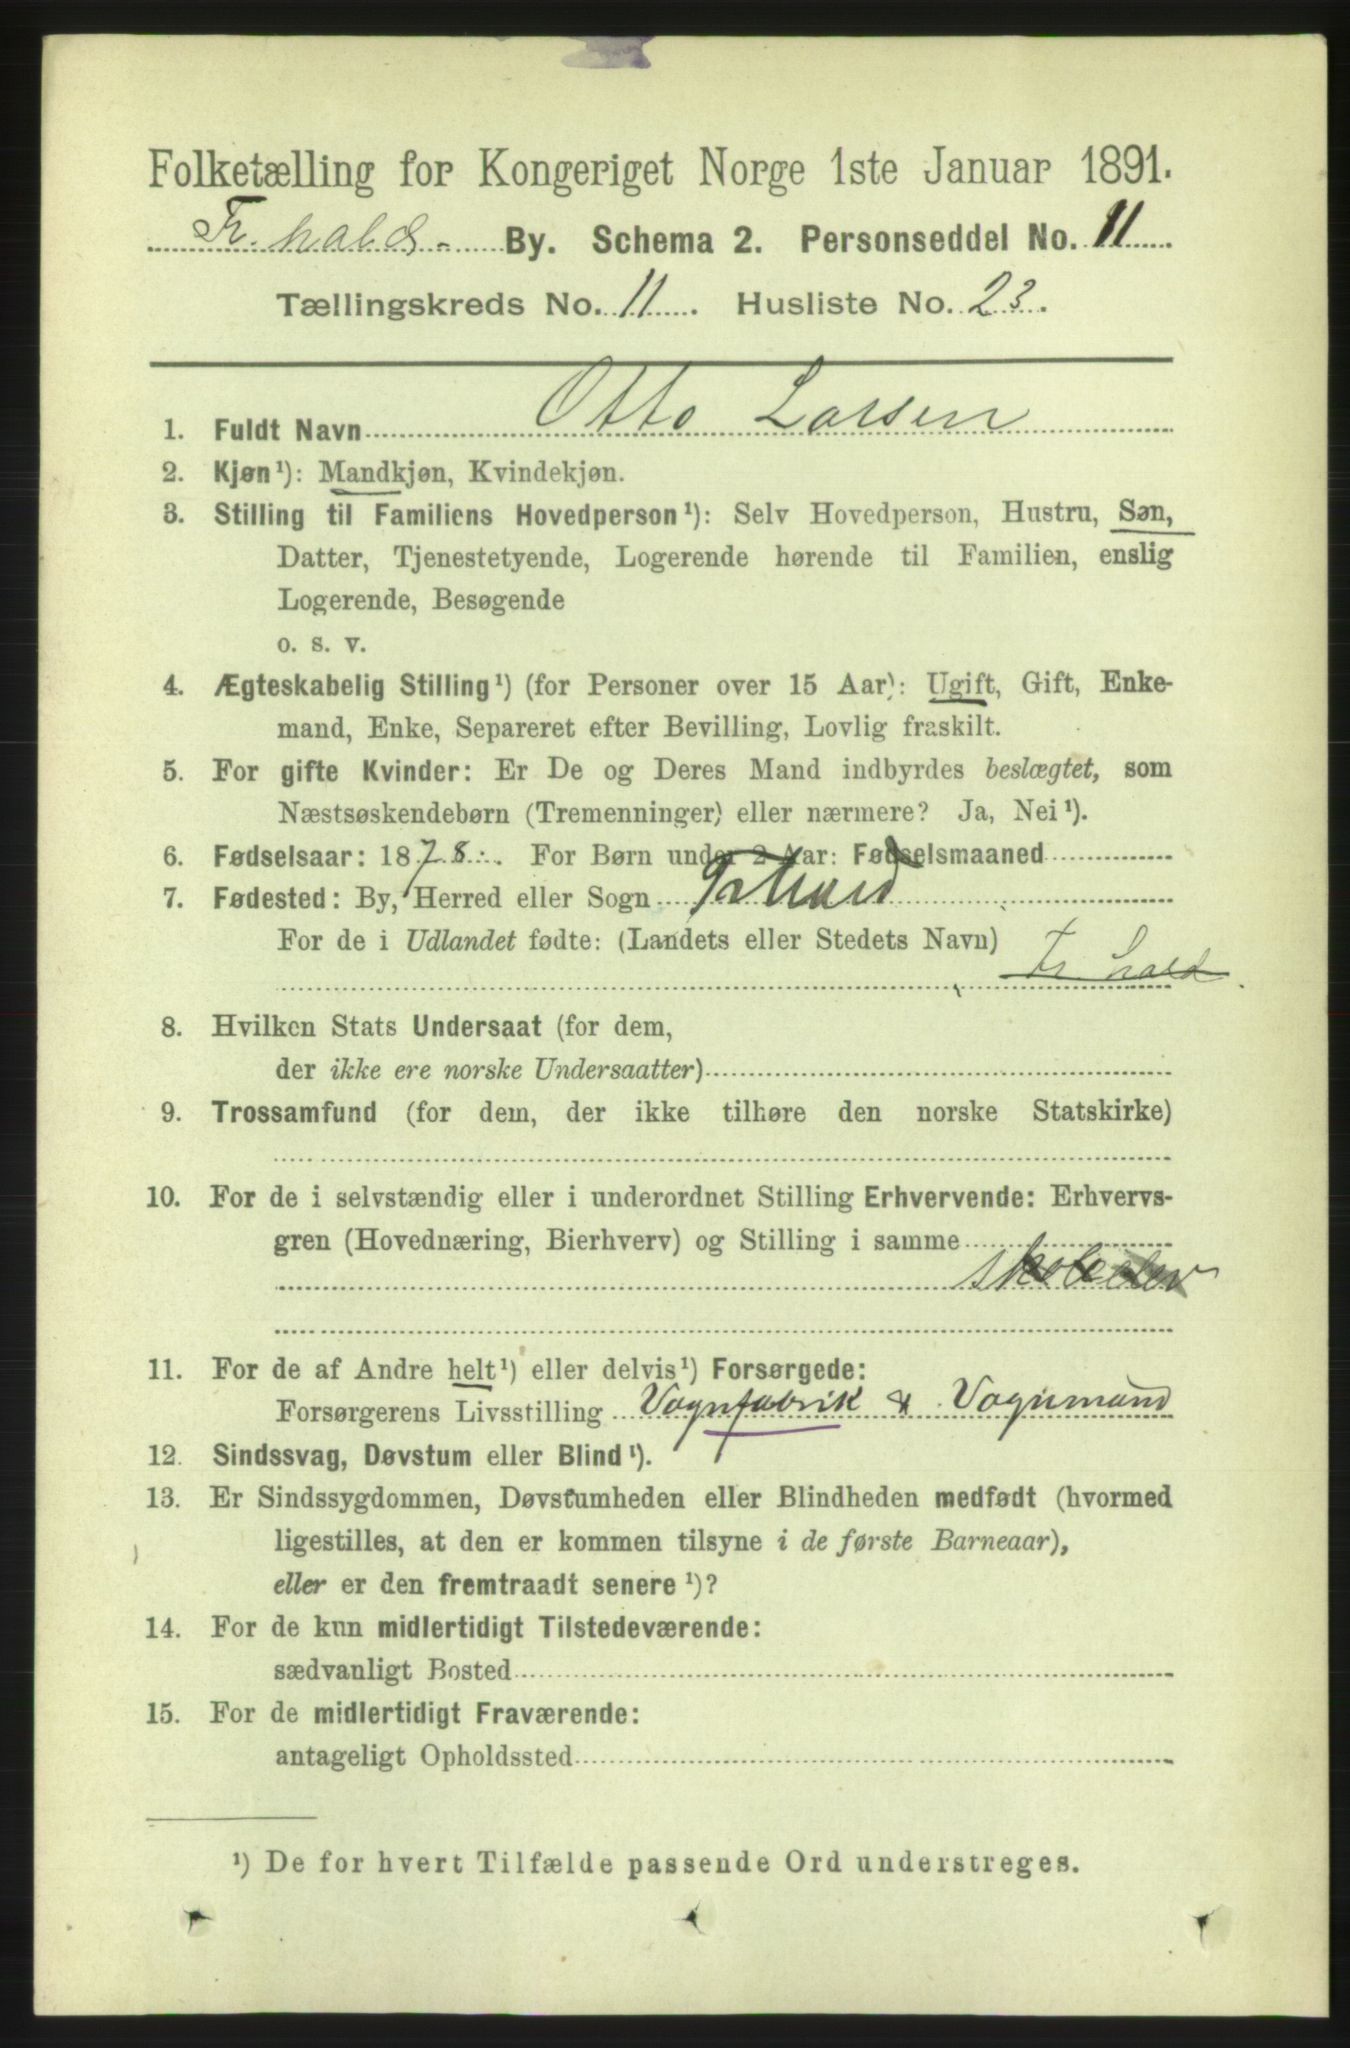 Folketælling for Kongeriget Norge 1ste Januar 1891.
Fr.halds By. Schema 2. Personseddel No. 11
Tællingskreds No. 11. Husliste No. 23.
1. Fuldt Navn Otto Larsen
2. Kjøn¹): Mandkjøn, Kvindekjøn.
3. Stilling til Familiens Hovedperson¹): Selv Hovedperson, Hustru, Søn,
Datter, Tjenestetyende, Logerende hørende til Familien, enslig
Logerende, Besøgende
o. s. v.
4. Ægteskabelig Stilling¹) (for Personer over 15 Aar): Ugift, Gift, Enke-
mand, Enke, Separeret efter Bevilling, Lovlig fraskilt.
5. For gifte Kvinder: Er De og Deres Mand indbyrdes beslægtet, som
Næstsøskendebørn (Tremenninger) eller nærmere? Ja, Nei¹).
6. Fødselsaar: 1878. For Børn under 2 Aar: Fødselsmaaned
7. Fødested: By, Herred eller Sogn Frhald
For de i Udlandet fødte: (Landets eller Stedets Navn)
Fr hald.
8. Hvilken Stats Undersaat (for dem,
der ikke ere norske Undersaatter)
9. Trossamfund (for dem, der ikke tilhøre den norske Statskirke)
10. For de i selvstændig eller i underordnet Stilling Erhvervende: Erhvervs-
gren (Hovednæring, Bierhverv) og Stilling i samme
skoleelev
11. For de af Andre helt¹) eller delvis¹) Forsørgede:
Forsørgerens Livsstilling Vognfabrik & Vognmand
12. Sindssvag, Døvstum eller Blind¹).
13. Er Sindssygdommen, Døvstumheden eller Blindheden medfødt (hvormed
ligestilles, at den er kommen tilsyne i de første Barneaar),
eller er den fremtraadt senere¹)?
14. For de kun midlertidigt Tilstedeværende:
sædvanligt Bosted
15. For de midlertidigt Fraværende:
antageligt Opholdssted
¹) De for hvert Tilfælde passende Ord understreges.